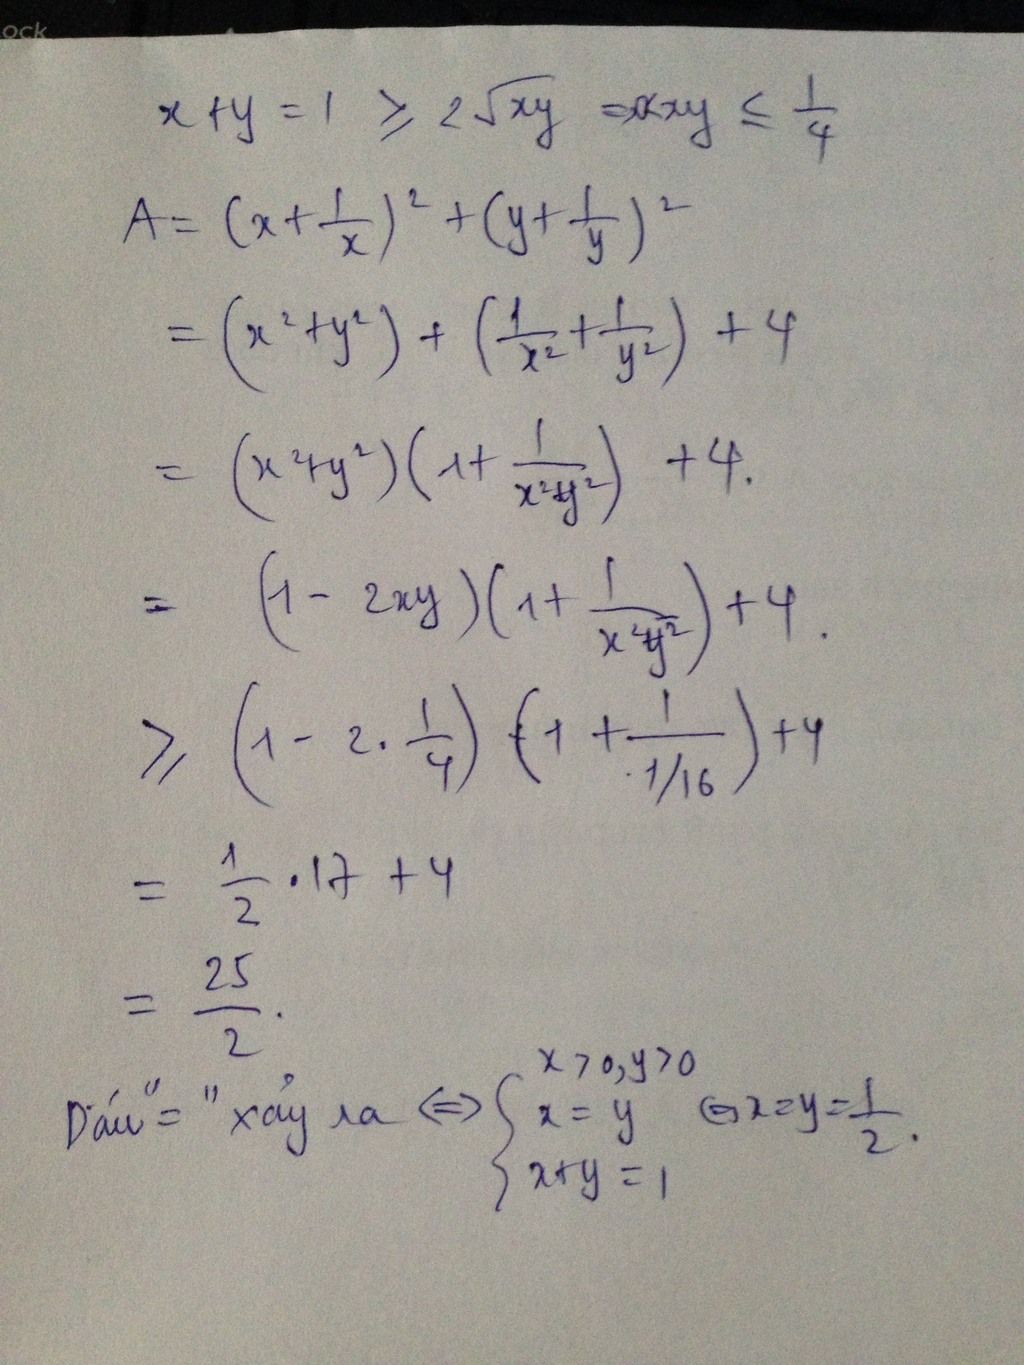 ock
x + y = 1 ≥ 2√xy => xy ≤ 1/4
A = (x + 1/x)² + (y + 1/y)²
= (x² + y²) + (1/x² + 1/y²) + 4
= (x² + y²)(1 + 1/(x²y²)) + 4.
= (1 - 2xy)(1 + 1/(x²y²)) + 4.
≥ (1 - 2 · 1/4) (1 + 1/(1/16)) + 4
= 1/2 · 17 + 4
= 25/2.
Dấu "=" xảy ra <=> { x > 0, y > 0
x = y <=> x = y = 1/2.
x + y = 1